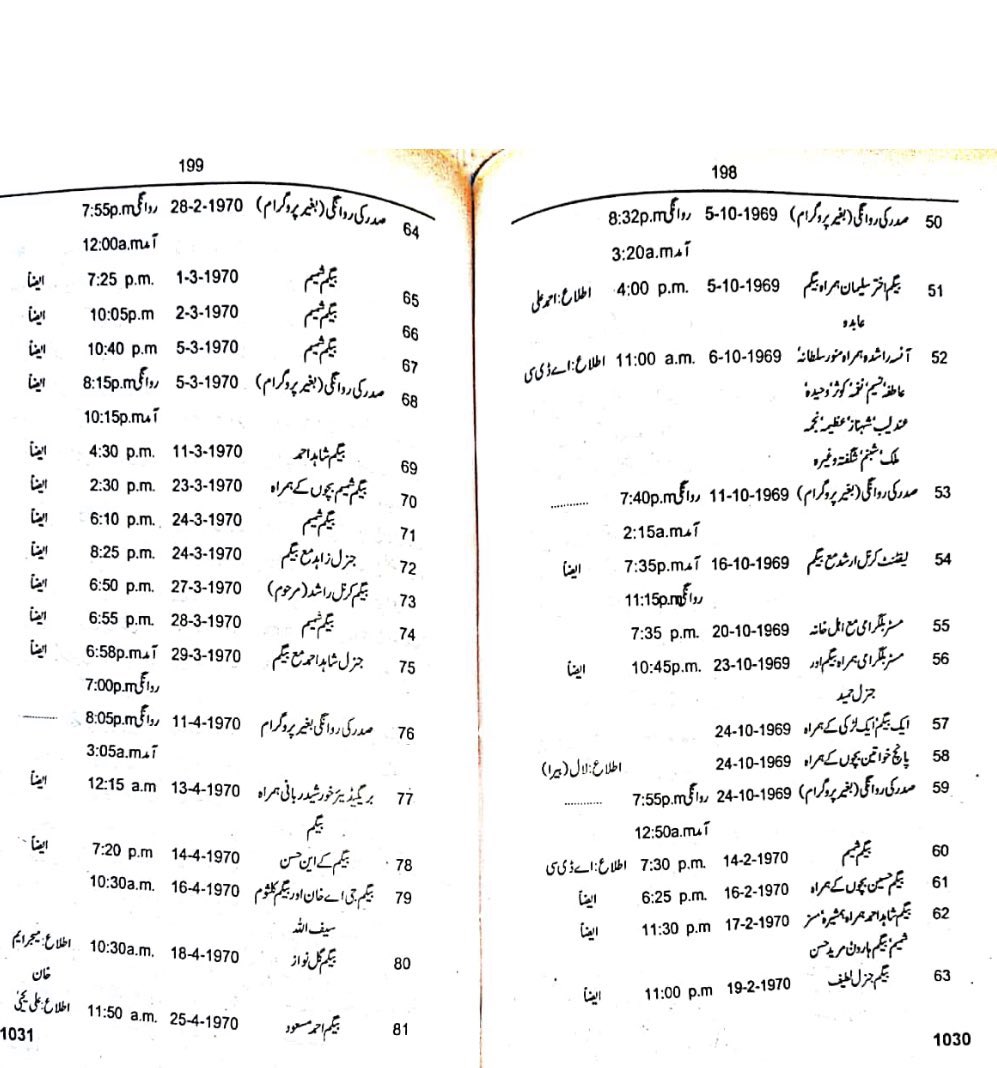 198
50 صدر کی روانگی (بغیر پروگرام) 5-10-1969 روانگی 8:32p.m
آمد 3:20a.m
51 بیگم اختر سلیمان ہمراہ بیگم 5-10-1969 4:00 p.m. اطلاع: احمد علی
عابدہ
52 آنسہ راشدہ ہمراہ منور سلطانہ‘ 6-10-1969 11:00 a.m. اطلاع: اے ڈی سی
عاطفہ‘ نسیم‘ نغمہ‘ کوثر‘ وحیدہ‘
عندلیب‘ شہناز‘ عظیمہ‘ نجمہ
ملک‘ شبنم‘ شگفتہ وغیرہ
53 صدر کی روانگی (بغیر پروگرام) 11-10-1969 روانگی 7:40p.m ............
آمد 2:15a.m
54 لیفٹننٹ کرنل ارشد مع بیگم 16-10-1969 آمد 7:35p.m ایضاً
روانگی 11:15p.m
55 مسٹر بلگرامی مع اہل خانہ 20-10-1969 7:35 p.m.
56 مسٹر بلگرامی ہمراہ بیگم اور 23-10-1969 10:45p.m. ایضاً
جنرل حمید
57 ایک بیگم‘ ایک لڑکی کے ہمراہ 24-10-1969
58 پانچ خواتین بچوں کے ہمراہ 24-10-1969 اطلاع: لال (بیرا)
59 صدر کی روانگی (بغیر پروگرام) 24-10-1969 روانگی 7:55p.m ............
آمد 12:50a.m
60 بیگم شمیم 14-2-1970 7:30 p.m. اطلاع: اے ڈی سی
61 بیگم حسین بچوں کے ہمراہ 16-2-1970 6:25 p.m. ایضاً
62 بیگم شاہد احمد ہمراہ ہمشیرہ‘ مسز 17-2-1970 11:30 p.m ایضاً
شمیم‘ بیگم ہارون‘ مرید حسن
63 بیگم جنرل لطیف 19-2-1970 11:00 p.m ایضاً
1030
199
64 صدر کی روانگی (بغیر پروگرام) 28-2-1970 روانگی 7:55p.m
آمد 12:00a.m
65 بیگم شمیم 1-3-1970 7:25 p.m. ایضاً
66 بیگم شمیم 2-3-1970 10:05p.m ایضاً
67 بیگم شمیم 5-3-1970 10:40 p.m ایضاً
68 صدر کی روانگی (بغیر پروگرام) 5-3-1970 روانگی 8:15p.m ایضاً
آمد 10:15p.m
69 بیگم شاہد احمد 11-3-1970 4:30 p.m. ایضاً
70 بیگم شمیم بچوں کے ہمراہ 23-3-1970 2:30 p.m. ایضاً
71 بیگم شمیم 24-3-1970 6:10 p.m. ایضاً
72 جنرل زاہد مع بیگم 24-3-1970 8:25 p.m. ایضاً
73 بیگم کرنل راشد (مرحوم) 27-3-1970 6:50 p.m. ایضاً
74 بیگم شمیم 28-3-1970 6:55 p.m. ایضاً
75 جنرل شاہد احمد مع بیگم 29-3-1970 آمد 6:58p.m ایضاً
روانگی 7:00p.m
76 صدر کی روانگی بغیر پروگرام 11-4-1970 روانگی 8:05p.m ............
آمد 3:05a.m
77 بریگیڈیئر خورشید ربانی ہمراہ 13-4-1970 12:15 a.m ایضاً
بیگم
78 بیگم کے این حسن 14-4-1970 7:20 p.m ایضاً
79 بیگم جی اے خان اور بیگم کلثوم 16-4-1970 10:30a.m.
سیف اللہ
80 بیگم گل نواز 18-4-1970 10:30a.m. اطلاع: میجر ایم
خان
81 بیگم احمد مسعود 25-4-1970 11:50 a.m. اطلاع: علی یحییٰ
1031